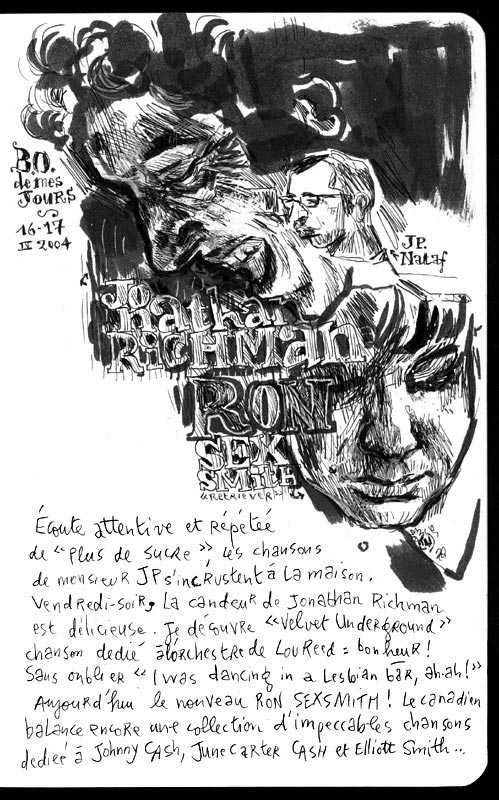 B.O.
de mes
JOURS
16-17
IV 2004
JP.
Nataf
JO
nathan
RiCHMan
RON
SEX
SMith
"RetRieveR"
Écoute attentive et Répétée
de "Plus de Sucre" Les chansons
de monsieur JP s'incrustent à La maison.
Vendredi-soir, La candeur de Jonathan Richman
est délicieuse. Je découvre "Velvet Underground"
chanson dedié à l'orchestre de Lou Reed = bonheur!
Sans oublier "I was dancing in a Lesbian bar, ah-ah!"
Aujourd'hui le nouveau RON SEXSMITH! Le canadien
balance encore une collection d'impeccables chansons
dedieé à Johnny Cash, June Carter Cash et Elliott Smith...